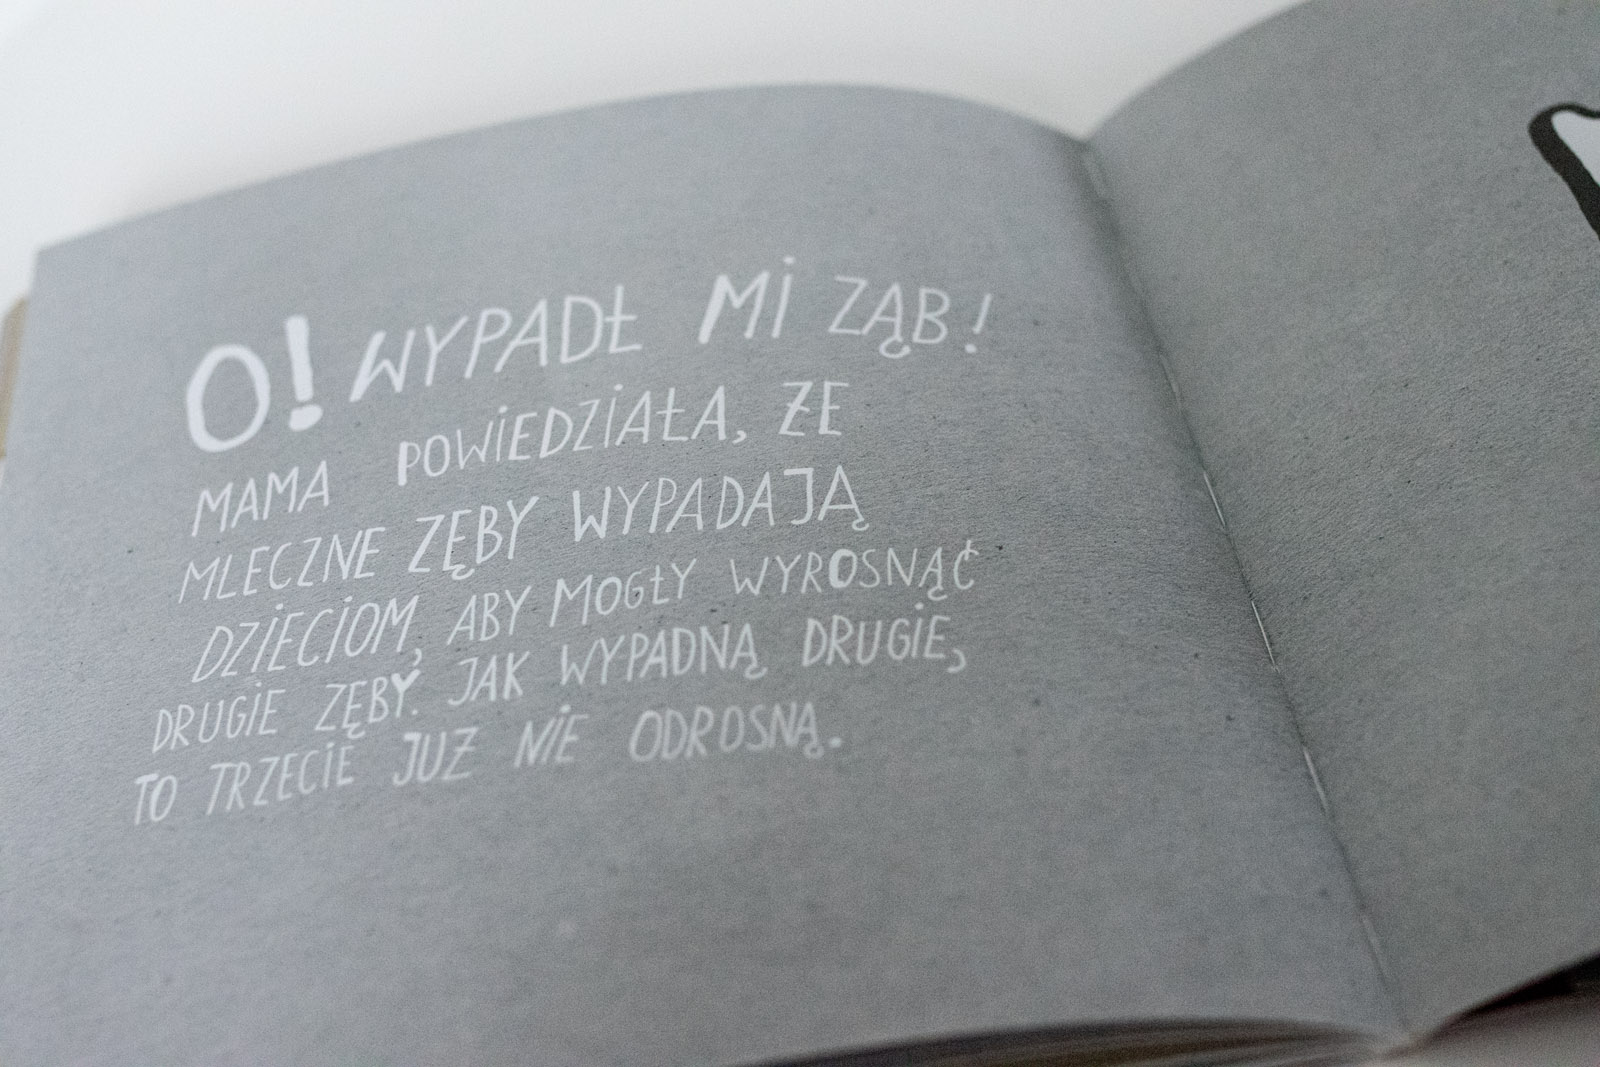 O! WYPADŁ MI ZĄB!
MAMA POWIEDZIAŁA, ŻE
MLECZNE ZĘBY WYPADAJĄ
DZIECIOM, ABY MOGŁY WYROSNĄĆ
DRUGIE ZĘBY. JAK WYPADNĄ DRUGIE,
TO TRZECIE JUŻ NIE ODROSNĄ.